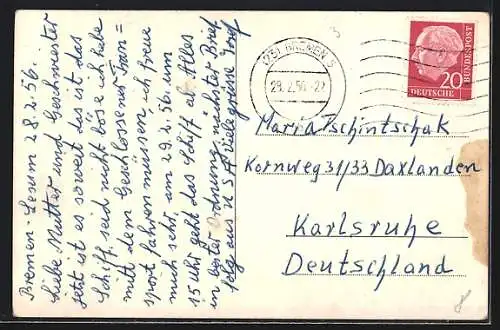 Bremen-Lesum 28.2.56.
Liebe Mutter und Geschwister
jetzt ist es soweit das ist das
Schiff. seid nicht böse ich habe
mitt dem Geschlossenen Tran=
sport fahren müssen, ich freue
mich sehr. am 29.2.56 um
15 uhr geht das schift ab Alles
in bester Ordnung. nächster Brief
folg aus USA viele grüsse Josef
(23) BREMEN 5
29.2.56.-22
DEUTSCHE
BUNDESPOST
20
Maria Tschintschak
Kornweg 31/33 Daxlanden
Karlsruhe
Deutschland